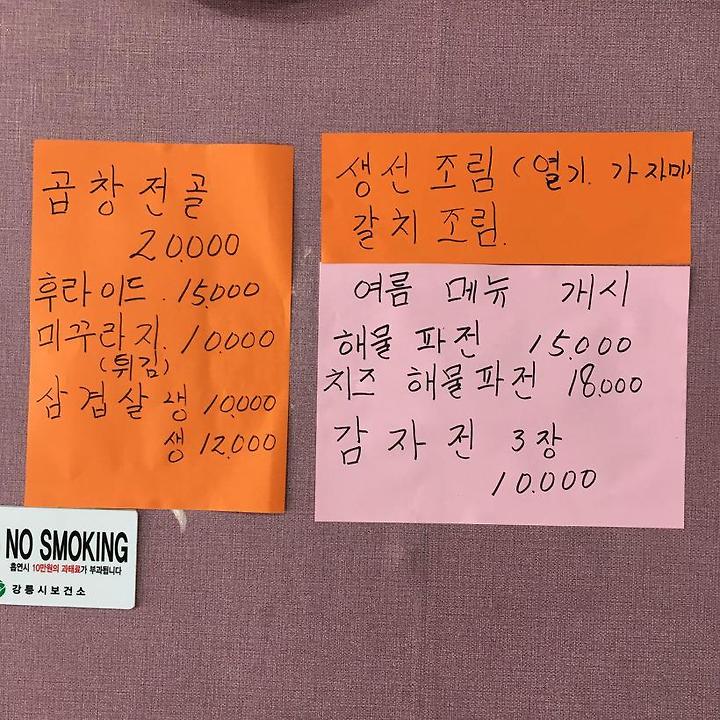 곱창전골
20.000
후라이드. 15.000
미꾸라지. 10.000
(튀김)
삼겹살 생 10.000
생 12.000
생선 조림 (열기. 가자미)
갈치 조림.
여름 메뉴 개시
해물 파전 15.000
치즈 해물파전 18.000
감자전 3장
10.000
NO SMOKING
흡연시 10만원의 과태료가 부과됩니다
강릉시보건소